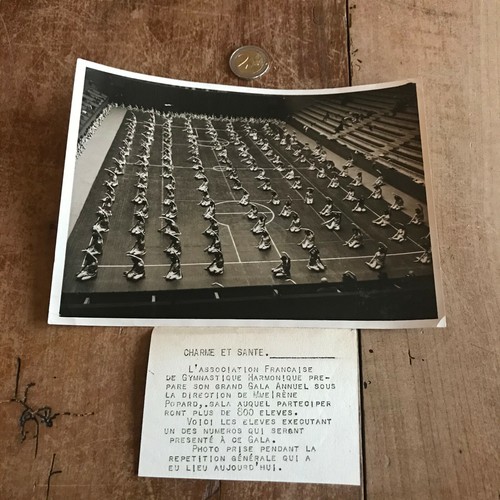 CHARME ET SANTE.
L'ASSOCIATION FRANCAISE
DE GYMNASTIQUE HARMONIQUE PRE-
PARE SON GRAND GALA ANNUEL SOUS
LA DIRECTION DE MMEIRÈNE
POPARD,.GALA AUQUEL PARTECIPER
RONT PLUS DE 800 ELEVES.
VOICI LES ELEVES EXECUTANT
UN DES NUMEROS QUI SERONT
PRESENTÉ À CE GALA.
PHOTO PRISE PENDANT LA
REPETITION GÉNÉRALE QUI A
EU LIEU AUJOURD'HUI.